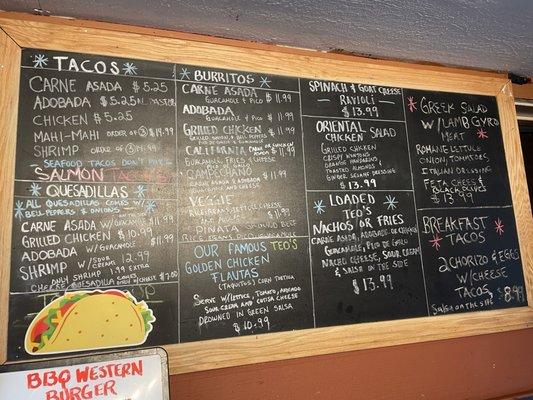 TACOS
CARNE ASADA $5.25
ADOBADA $5.25
CHICKEN $5.25
MAHI-MAHI ORDER OF 3 $14.99
SHRIMP ORDER OF
SEAFOOD TACOS DON'T
SALMON TACOS
QUESADILLAS
ALL QUESADILLAS COMES W/
BELL PEPPERS & ONIONS
CARNE ASADA W/GUACAMOLE $11.99
GRILLED CHICKEN $10.99
ADOBADA W/GUACAMOLE $11.99
SHRIMP W/SOUR CREAM 12.99
ONLY SHRIMP 1.99 EXTRA
QUESADILLA $7.00
BURRITOS
CARNE ASADA
GUACAMOLE & PICO $11.99
ADOBADA
GUACAMOLE & PICO $11.99
GRILLED CHICKEN $10.99
CALIFORNIA
GUACAMOLE FRIES & CHEESE $11.99
CAMPECHANO
CARNE ASADA & SHRIMP $11.99
VEGGIE
PINATA
OUR FAMOUS TEO'S
GOLDEN CHICKEN
FLAUTAS
(TAQUITOS) CORN TORTILLA
SERVE W/LETTUCE, TOMATO,
SOUR CREAM AND COTIJA CHEESE
DROWNED IN GREEN SALSA
$10.99
SPINACH & GOAT CHEESE
RAVIOLI
$13.99
ORIENTAL CHICKEN SALAD
GRILLED CHICKEN
CRISPY WONTONS
ORANGE MANDARINS
TOASTED ALMONDS &
GINGER SESAME DRESSING
$13.99
LOADED TEO'S
NACHOS OR FRIES
CARNE ASADA, ADOBADA OR CHICKEN
GUACAMOLE, PICO DE GALLO
NACHO CHEESE, SOUR CREAM
& SALSA ON THE SIDE
$13.99
GREEK SALAD
W/LAMB GYRO
MEAT
ROMAINE LETTUCE
ONION, TOMATOES,
ITALIAN DRESSING
FETA CHEESE &
BLACK OLIVES
$13.99
BREAKFAST
TACOS
2 CHORIZO & EGGS
W/CHEESE
TACOS $8.99
SALSA ON THE SIDE
BBQ WESTERN
BURGER